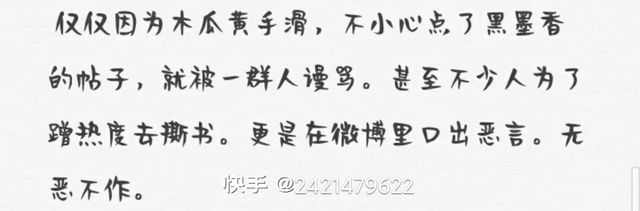 仅仅因为木瓜黄手滑，不小心点了黑墨香
的帖子，就被一群人谩骂。甚至不少人为了
蹭热度去撕书。更是在微博里口出恶言。无
恶不作。
快手 @2421479622